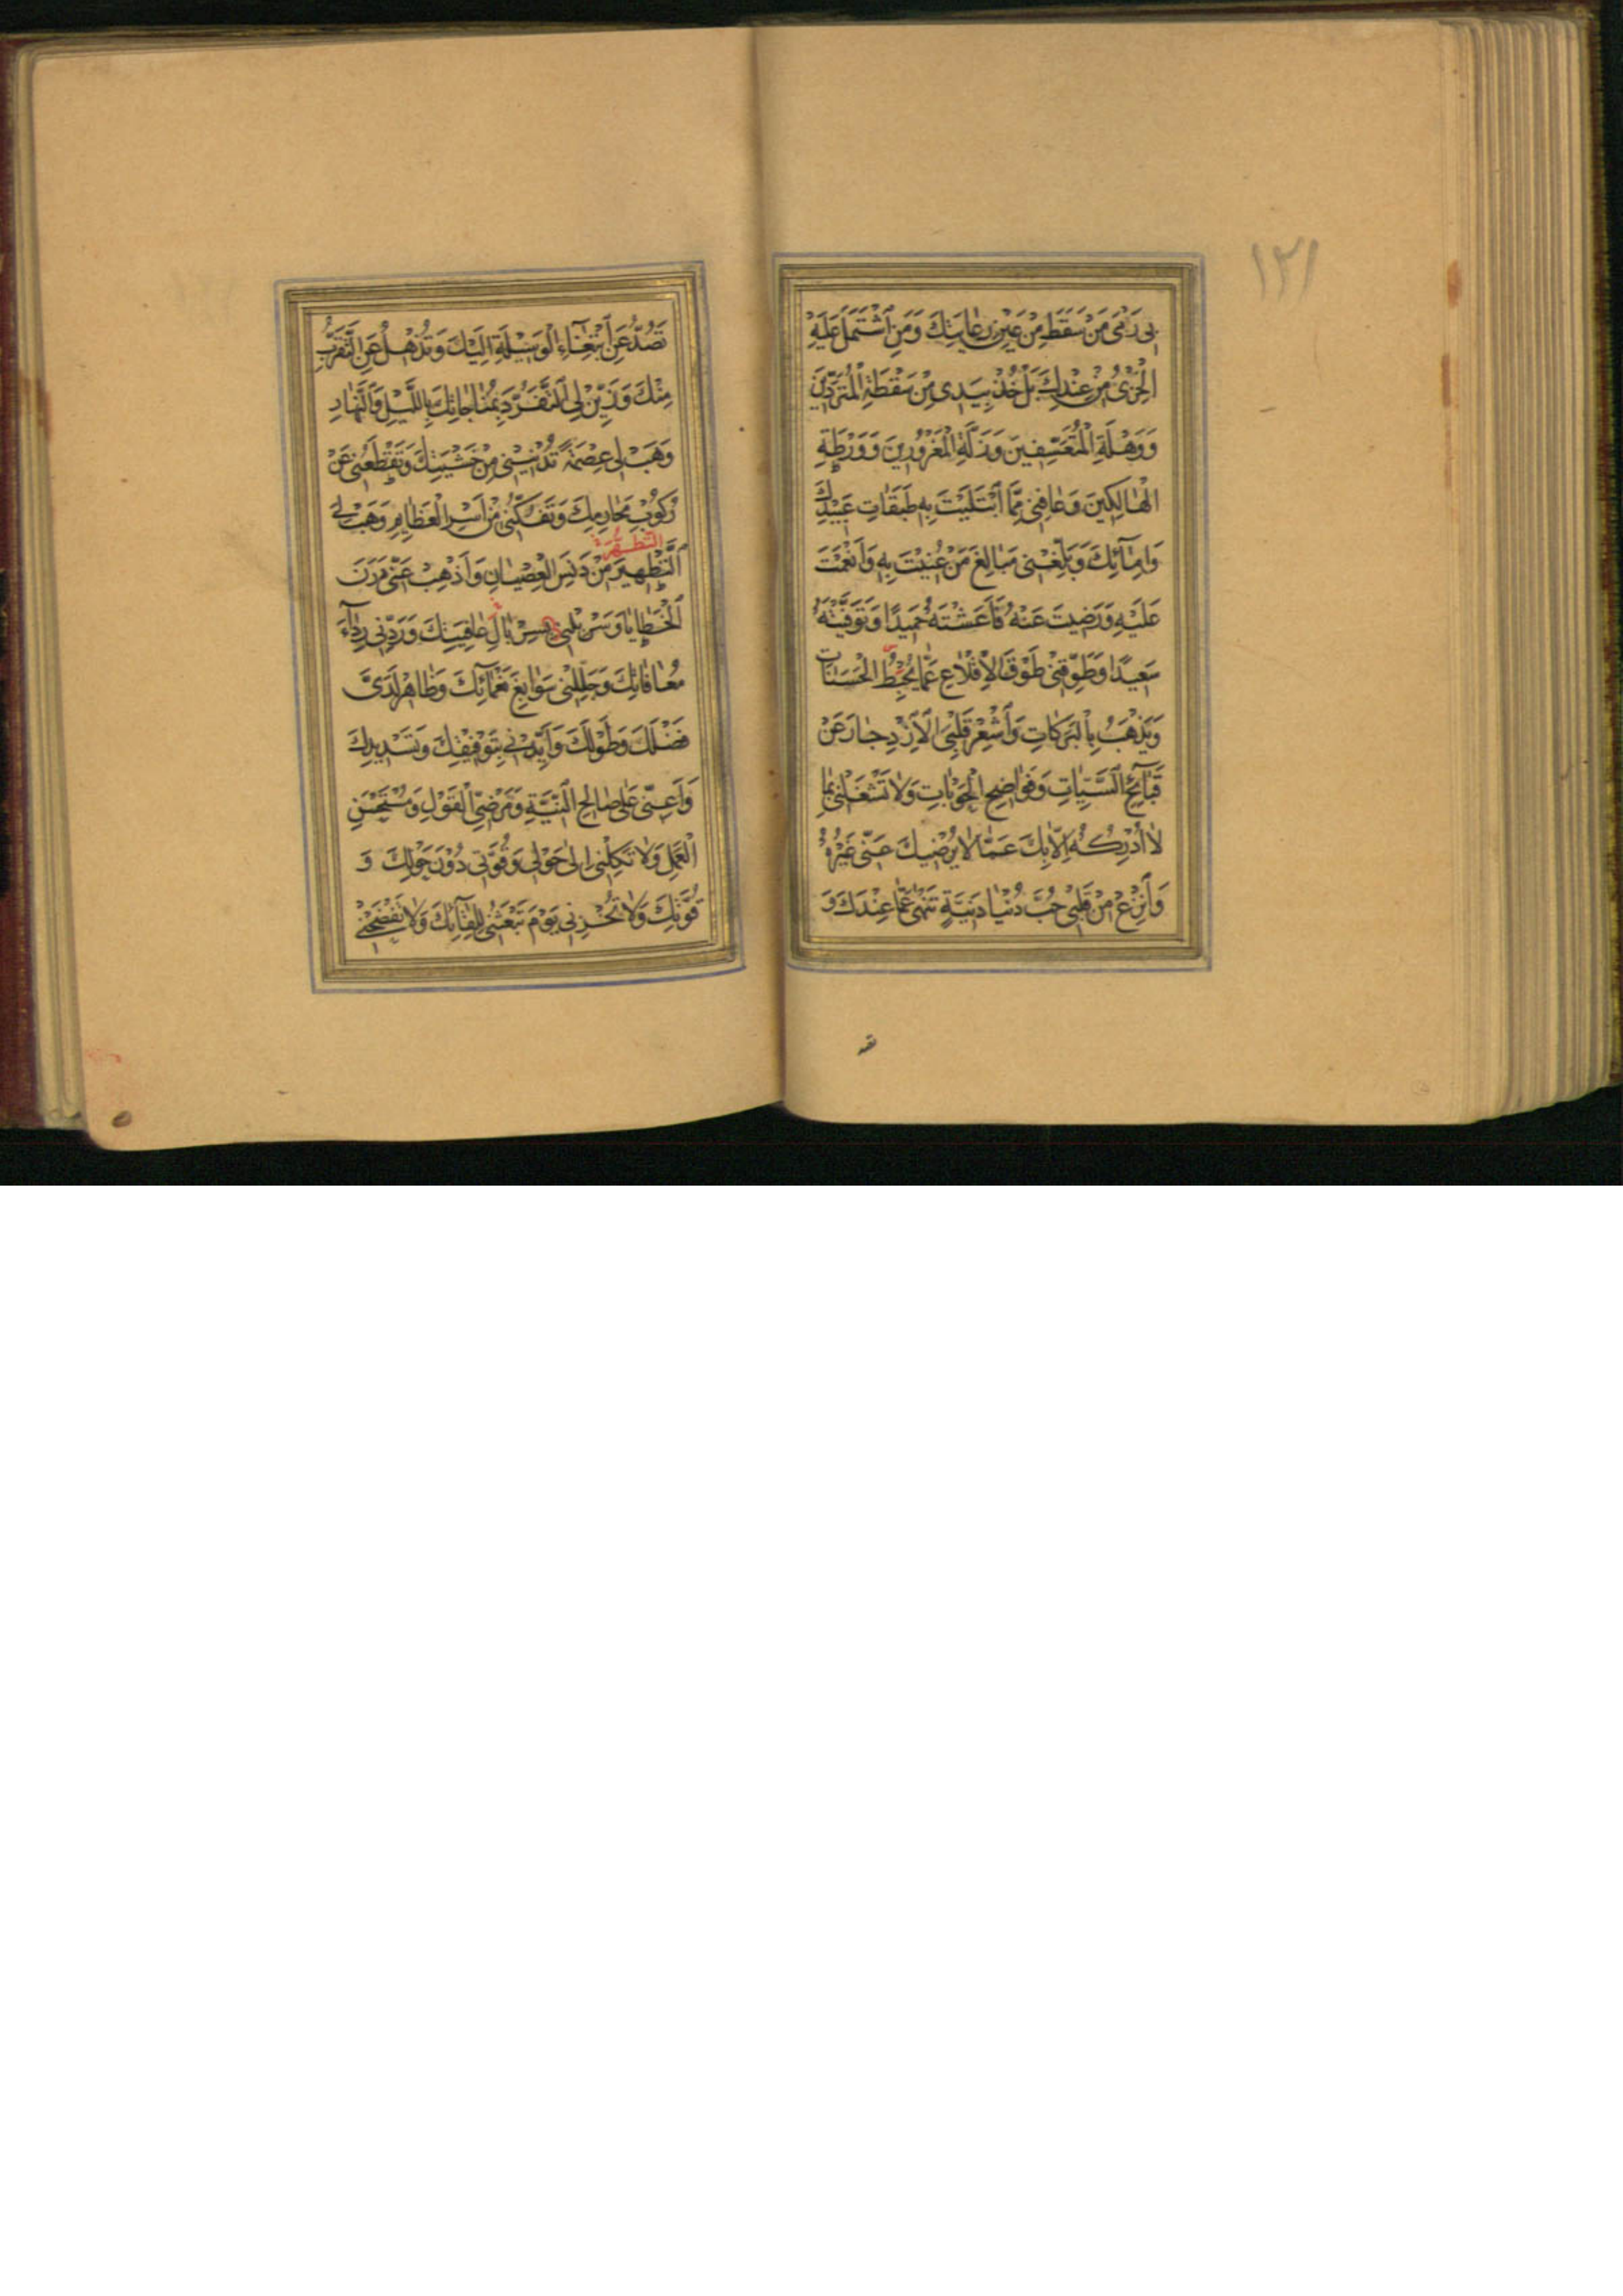 ١٢١
بِى رَمْىَ مَنْ سَقَطَ مِنْ عَيْنِ رِعٰايَتِكَ وَمَنِ اشْتَمَلَ عَلَيْهِ
الْخِزْىُ مِنْ عِنْدِكَ بَلْ خُذْ بِيَدِى مِنْ سَقْطَةِ الْمُتَرَدِّينَ
وَوَهْلَةِ الْمُتَعَسِّفِينَ وَزَلَّةِ الْمَغْرُورِينَ وَوَرْطَةِ
الْهٰالِكِينَ وَعٰافِنِى مِمَّا ابْتَلَيْتَ بِهِ طَبَقٰاتِ عَبِيدِكَ
وَاِمٰآئِكَ وَبَلِّغْنِى مَبٰالِغَ مَنْ عُنِيتَ بِهِ وَاَنْعَمْتَ
عَلَيْهِ وَرَضِيتَ عَنْهُ فَاَعَشْتَهُ حَمِيدًا وَتَوَفَّيْتَهُ
سَعِيدًا وَطَوِّقْنِى طَوْقَ الْاِقْلٰاعِ عَمّٰا يُحْبِطُ الْحَسَنٰاتِ
وَيَذْهَبُ بِالْبَرَكٰاتِ وَاَشْعِرْ قَلْبِىَ الْاِزْدِجٰارَ عَنْ
قَبٰآئِحِ السَّيِّئٰاتِ وَفَوٰاضِحِ الْحَوْبٰاتِ وَلٰا تَشْغَلْنِى بِمٰا
لٰا اُدْرِكُهُ اِلّٰا بِكَ عَمّٰا لٰا يُرْضِيكَ عَنِّى غَيْرُهُ
وَانْزِعْ مِنْ قَلْبِى حُبَّ دُنْيٰا دَنِيَّةٍ تَنْهٰى عَمّٰا عِنْدَكَ وَ
تصد
تَصُدُّ عَنِ ابْتِغٰآءِ الْوَسِيلَةِ اِلَيْكَ وَتُذْهِلُ عَنِ التَّقَرُّبِ
مِنْكَ وَزَيِّنْ لِىَ التَّفَرُّدَ بِمُنٰاجٰاتِكَ بِاللَّيْلِ وَالنَّهٰارِ
وَهَبْ لِى عِصْمَةً تُدْنِينِى مِنْ خَشْيَتِكَ وَتَقْطَعُنِى عَنْ
رُكُوبِ مَحٰارِمِكَ وَتَفُكَّنِى مِنْ اَسْرِ الْعَظٰآئِمِ وَهَبْ لِى
التطهرة
التَّطْهِيرَ مِنْ دَنَسِ الْعِصْيٰانِ وَاَذْهِبْ عَنِّى دَرَنَ
الْخَطٰايٰا وَسَرْبِلْنِى بِسِرْبٰالِ عٰافِيَتِكَ وَرَدِّنِى رِدٰآءَ
مُعٰافٰاتِكَ وَجَلِّلْنِى سَوٰابِغَ نَعْمٰآئِكَ وَظٰاهِرْ لَدَىَّ
فَضْلَكَ وَطَوْلَكَ وَاَيِّدْنِى بِتَوْفِيقِكَ وَتَسْدِيدِكَ
وَاَعِنِّى عَلٰى صٰالِحِ النِّيَّةِ وَمَرْضِىِّ الْقَوْلِ وَمُسْتَحْسَنِ
الْعَمَلِ وَلٰا تَكِلْنِى اِلٰى حَوْلِى وَقُوَّتِى دُونَ حَوْلِكَ وَ
قُوَّتِكَ وَلٰا تُخْزِنِى يَوْمَ تَبْعَثُنِى لِلِقٰآئِكَ وَلٰا تَفْضَحْنِى